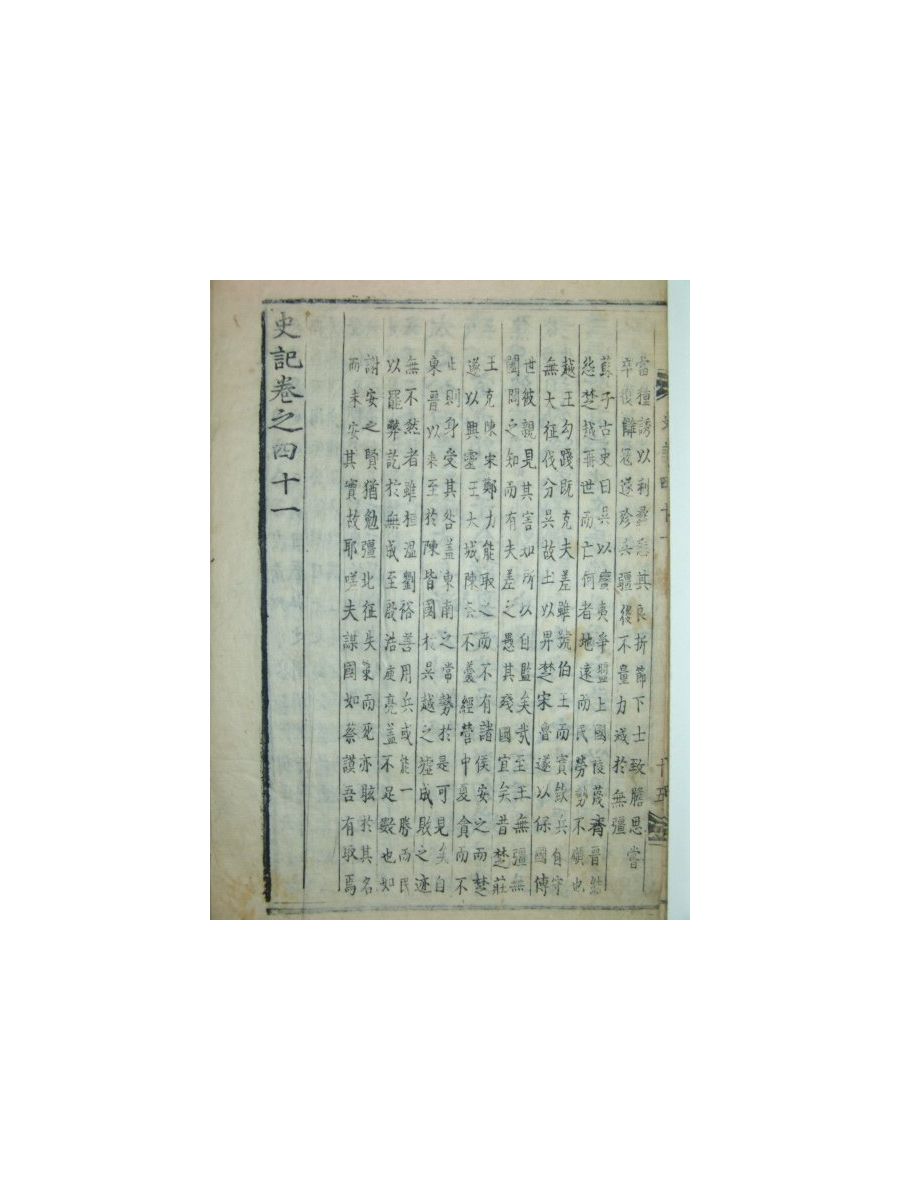 當種誘以利蠡悉其良折節下士致膽思嘗
卒復讎冦遂殄兵疆後不量力滅於無疆
蘇子古史曰吳以蠻夷爭盟上國陵蔑齊晉結
怨楚越再世而亡何者地遠而民勞勢不順也
越王勾踐既克夫差雖號伯王而實歛兵自守
無大征伐分吳故土以畀楚宋魯遂以保國傳
世彼親見其害知所以自監矣武至王無彊無
闔閭之知而有夫差之愚其殘國宜矣昔楚莊
王克陳宋鄭力能取之而不有諸侯安之而楚
遂以興靈王大城陳蔡不羹經營中夏貪而不
止則身受其咎盖東南之常勢於是可見矣自
東晉以来至於陳皆國於吳越之墟成敗之迹
無不然者雖桓溫劉裕善用兵或能一勝而民
以罷弊訖於無成至殷浩庾亮盖不足數也如
謝安之賢猶勉彊北征失衆而死亦眩於其名
而未安其實故耶嗟夫謀國如蔡謨吾有取焉
史記卷之四十一